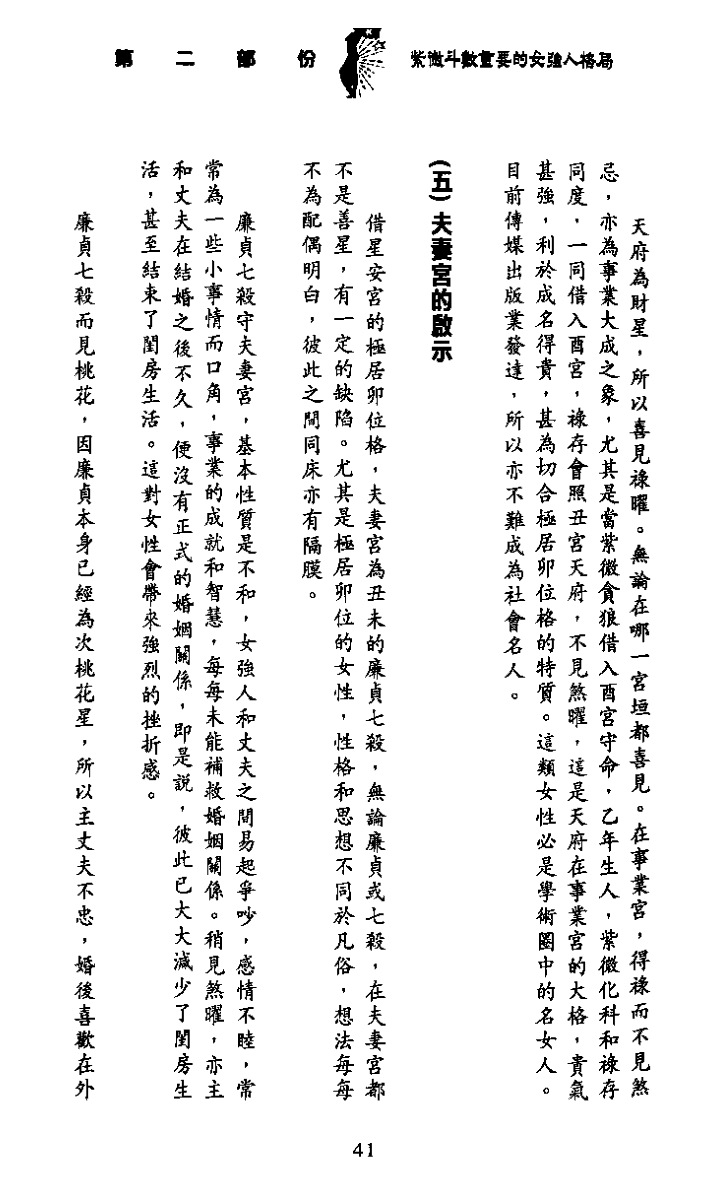 第二部份
紫微斗數重要的女強人格局
天府為財星，所以喜見祿曜。無論在哪一宮垣都喜見。在事業宮，得祿而不見煞
忌，亦為事業大成之象，尤其是當紫微貪狼借入酉宮守命，乙年生人，紫微化科和祿存
同度，一同借入酉宮，祿存會照丑宮天府，不見煞曜，這是天府在事業宮的大格，貴氣
甚強，利於成名得貴，甚為切合極居卯位格的特質。這類女性必是學術圈中的名女人。
目前傳媒出版業發達，所以亦不難成為社會名人。
(五) 夫妻宮的啟示
借星安宮的極居卯位格，夫妻宮為丑未的廉貞七殺，無論廉貞或七殺，在夫妻宮都
不是善星，有一定的缺陷。尤其是極居卯位的女性，性格和思想不同於凡俗，想法每每
不為配偶明白，彼此之間同床亦有隔膜。
廉貞七殺守夫妻宮，基本性質是不和，女強人和丈夫之間易起爭吵，感情不睦，常
常為一些小事情而口角，事業的成就和智慧，每每未能補救婚姻關係。稍見煞曜，亦主
和丈夫在結婚之後不久，便沒有正式的婚姻關係，即是說，彼此已大大減少了閨房生
活，甚至結束了閨房生活。這對女性會帶來強烈的挫折感。
廉貞七殺而見桃花，因廉貞本身已經為次桃花星，所以主丈夫不忠，婚後喜歡在外
41